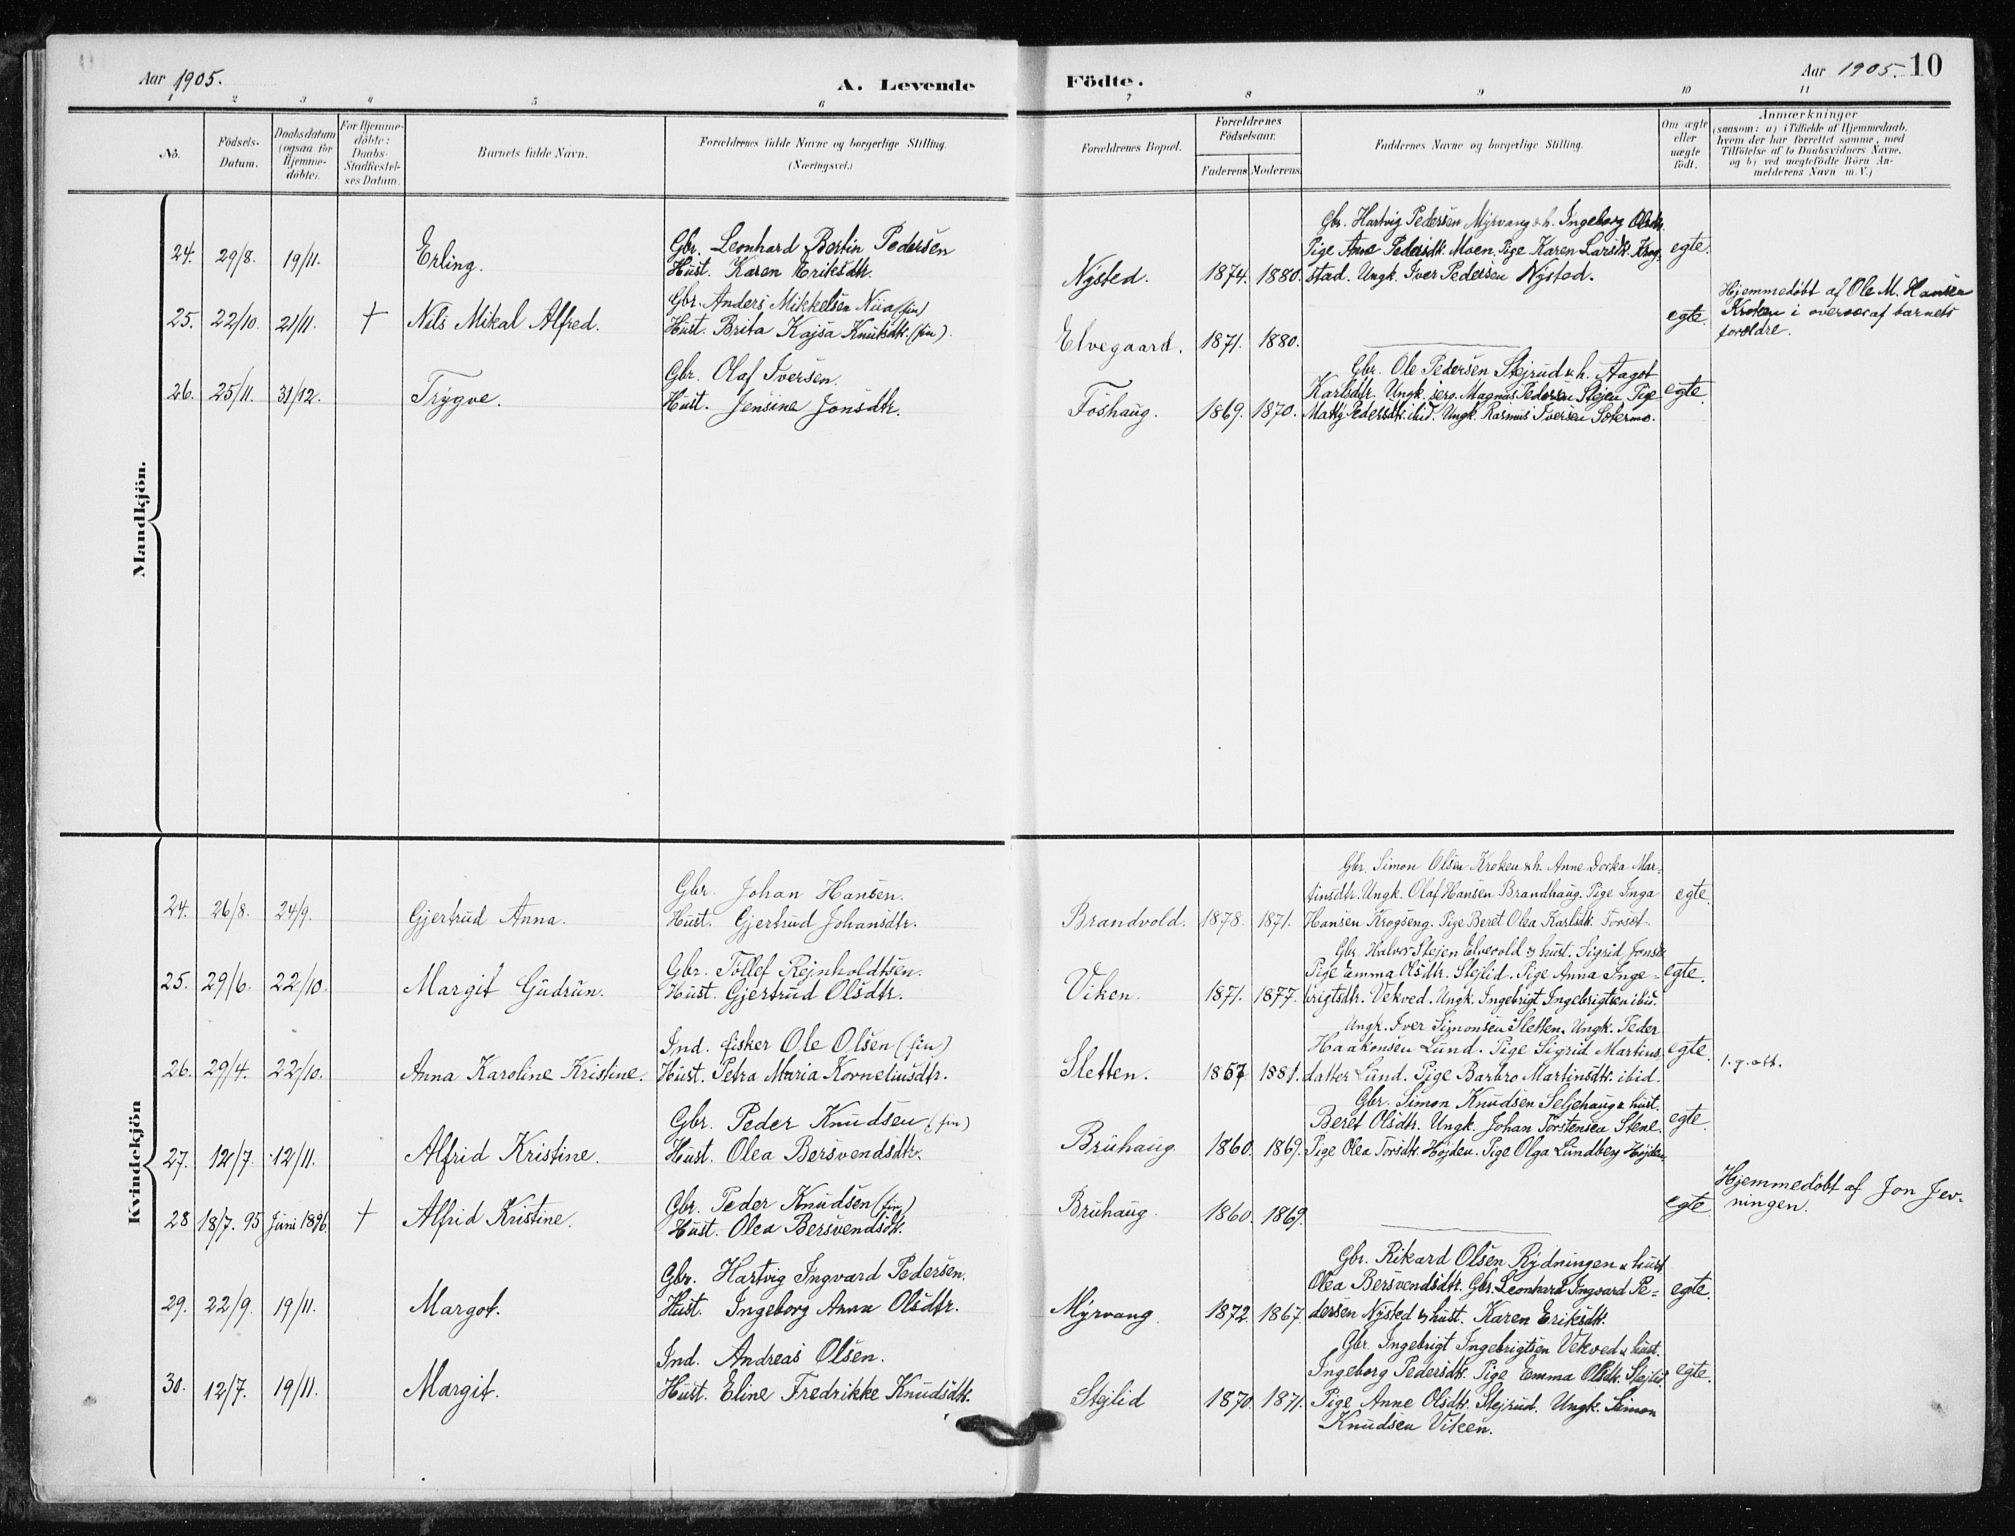 Aar 1905.
A. Levende
Födte.
Aar 1905. 10
1 2 3 4 5 6 7 8 9 10 11
No.
Födsels-
Datum.
Daabsdatum
(ogsaa for
Hjemme-
döbte).
For Hjemme-
döbte:
Daabs-
Stadfæstel-
ses Datum.
Barnets fulde Navn.
Forældrenes fulde Navne og borgerlige Stilling.
(Næringsvei.)
Forældrenes Bopæl.
Forældrenes
Födselsaar.
Faderens Moderens
Faddernes Navne og borgerlige Stilling.
Om ægte
eller
uægte
födt.
Anmærkninger
(saasom: a) i Tilfælde af Hjemmedaab,
hvem der har forrettet samme, med
Tilföielse af to Daabsvidners Navne,
og b) ved uægtefödte Börn An-
melderens Navn m. V.)
Mandkjön.
24. 29/8. 19/11. Erling.
Gbr. Leonhard Bertin Pedersen
Hust. Karen Eriksdtr.
Nysted. 1874. 1880.
Gbr. Hartvig Pedersen Myrvang & h. Ingeborg Olsdtr.
Pige Anne Pedersdtr. Moen. Pige Karen Larsdtr. Krog-
stad. Ungk. Iver Pedersen Nysted.
egte.
25. 22/10. 21/11. † Nils Mikal Alfred.
Gbr. Anders Mikkelsen Niva (fin)
Hust. Brita Kajsa Knutsdtr. (fin).
Elvegaard. 1871. 1880.
egte.
Hjemmedöbt af Ole M. Hansen
Kroken i overvær af barnets
forældre.
26. 25/11. 31/12. Trygve.
Gbr. Olaf Iversen.
Hust. Jensine Jonsdtr.
Foshaug. 1869. 1870.
Gbr. Ole Pedersen Stejrud & h. Aagot
Karlsdtr. Ungk. serg. Magnus Pedersen Stejen Pige
Matty Pedersdtr. ibid. Ungk. Rasmus Iversen Solermo.
egte.
Kvindekjön
24. 26/8. 24/9. Gjertrud Anna.
Gbr. Johan Hansen.
Hust. Gjertrud Johansdtr.
Brandvold. 1878. 1871.
Gbr. Simon Olsen Kroken & h. Anne Dorka Mar-
tinsdtr. Ungk. Olaf Hansen Brandhaug. Pige Inga
Hansen Krogseng. Pige Beret Olea Karlsdtr. Forset.
egte.
25. 29/6. 22/10. Margit Gudrun.
Gbr. Tollef Rejnholdtsen.
Hust. Gjertrud Olsdtr.
Viken. 1871. 1877.
Gbr. Halvor Stejen Elvevold & hust. Sigrid Jonsdtr.
Pige Emma Olsdtr. Stejlid. Pige Anna Inge-
brigtsdtr. Vekved. Ungk. Ingebrigt Ingebrigtsen ibid.
egte.
26. 29/4. 22/10. Anna Karoline Kristine.
Ind. fisker Ole Olsen (fin)
Hust. Petra Maria Korneliusdtr.
Sletten. 1857 1881.
Ungk. Iver Simonsen Sletten. Ungk. Peder
Haakonsen Lund. Pige Sigrid Martins-
datter Lund. Pige Barbro Martinsdtr. ibid.
egte.
27. 12/7. 12/11. Alfrid Kristine.
Gbr. Peder Knudsen (fin)
Hust. Olea Bersvendsdtr.
Bruhaug. 1860. 1869.
Gbr. Simon Knudsen Seljehaug & hust.
Beret Olsdtr. Ungk. Johan Torstensen Stene.
Pige Olea Torsdtr. Højden. Pige Olga Lundberg Højden.
egte.
28 18/7. 95 Juni 1896. † Alfrid Kristine.
Gbr. Peder Knudsen (fin)
Hust. Olea Bersvendsdtr.
Bruhaug. 1860. 1869.
egte
Hjemmedöbt af Jon Jev-
ningen.
29. 22/9. 19/11. Margot.
Gbr. Hartvig Ingvard Pedersen.
Hust. Ingeborg Anna Olsdtr.
Myrvang 1872. 1867.
Gbr. Rikard Olsen Rydningen & hust
Olea Bersvendsdtr. Gbr. Leonhard Ingvard Pe-
dersen Nysted & hust. Karen Eriksdtr.
egte.
30. 12/7. 19/11. Margit.
Ind. Andreas Olsen.
Hust. Eline Fredrikke Knudsdtr.
Stejlid 1870. 1871.
Gbr. Ingebrigt Ingebrigtsen Vekved & hust.
Ingeborg Pedersdtr. Pige Emma Olsdtr. Stejlid
Pige Anne Olsdtr. Stejrud. Ungk. Simon
Knudsen Viken.
egte.